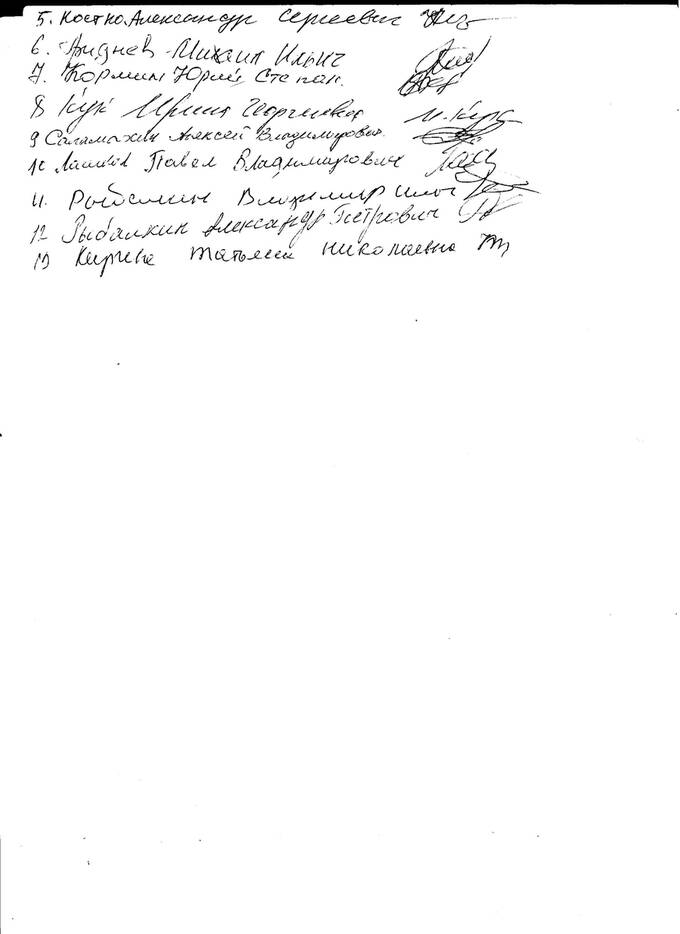 5. Костко Александр Сергеевич
6. Михаил Ильич
7. Юрий Степан.
8 Кук Ирина Георгиевна И. Кук
9 Саламахин Алексей Владимирович
10 Павел Владимирович
11. Владимир Ильич
12 Рыбалкин Александр Петрович
13 Татьяна Николаевна